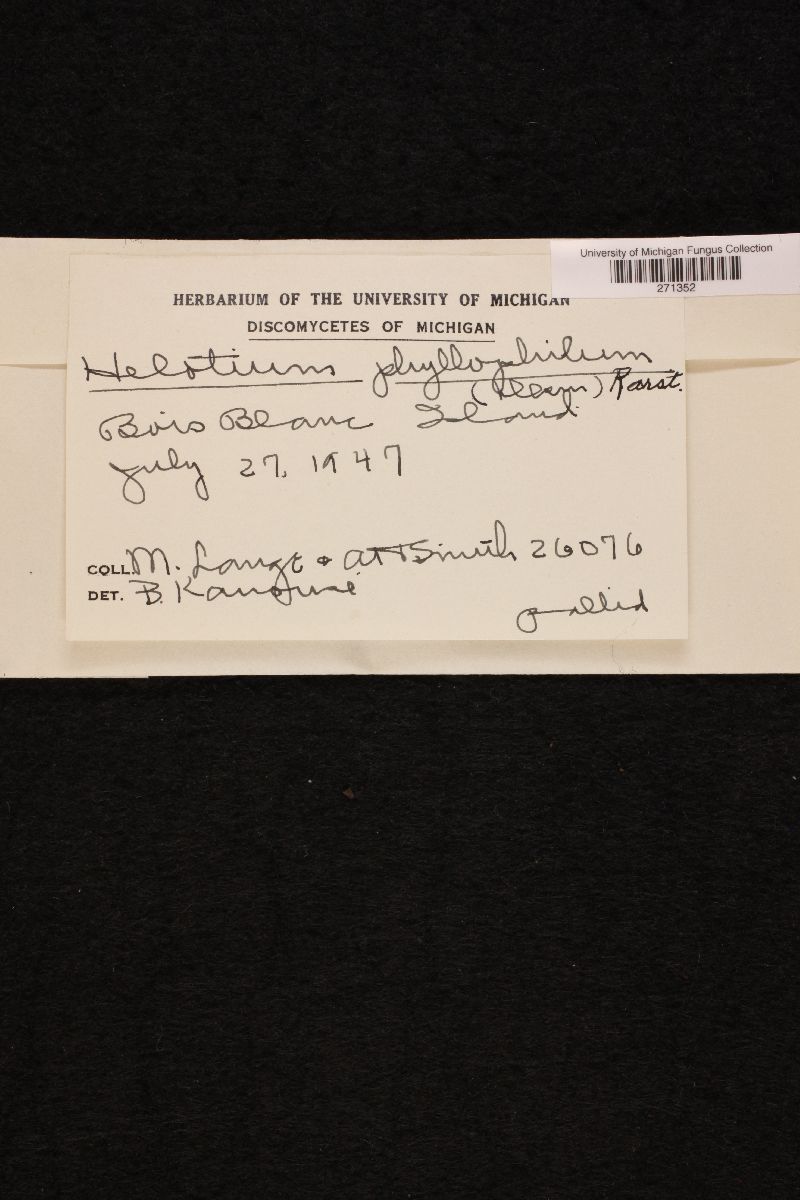 University of Michigan Fungus Collection
271352
HERBARIUM OF THE UNIVERSITY OF MICHIGAN
DISCOMYCETES OF MICHIGAN
Helotium phyllophilum
(Desm) Karst.
Bois Blanc Island
July 27, 1947
COLL. M. Lange & AH Smith 26076
DET. B. Kanouse
pallid